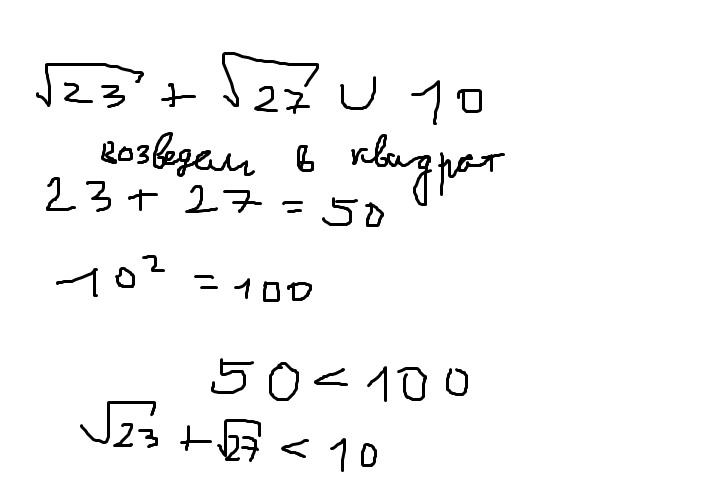 √23 + √27 ∪ 10
возведем в квадрат
23 + 27 = 50
10² = 100
50 < 100
√23 + √27 < 10